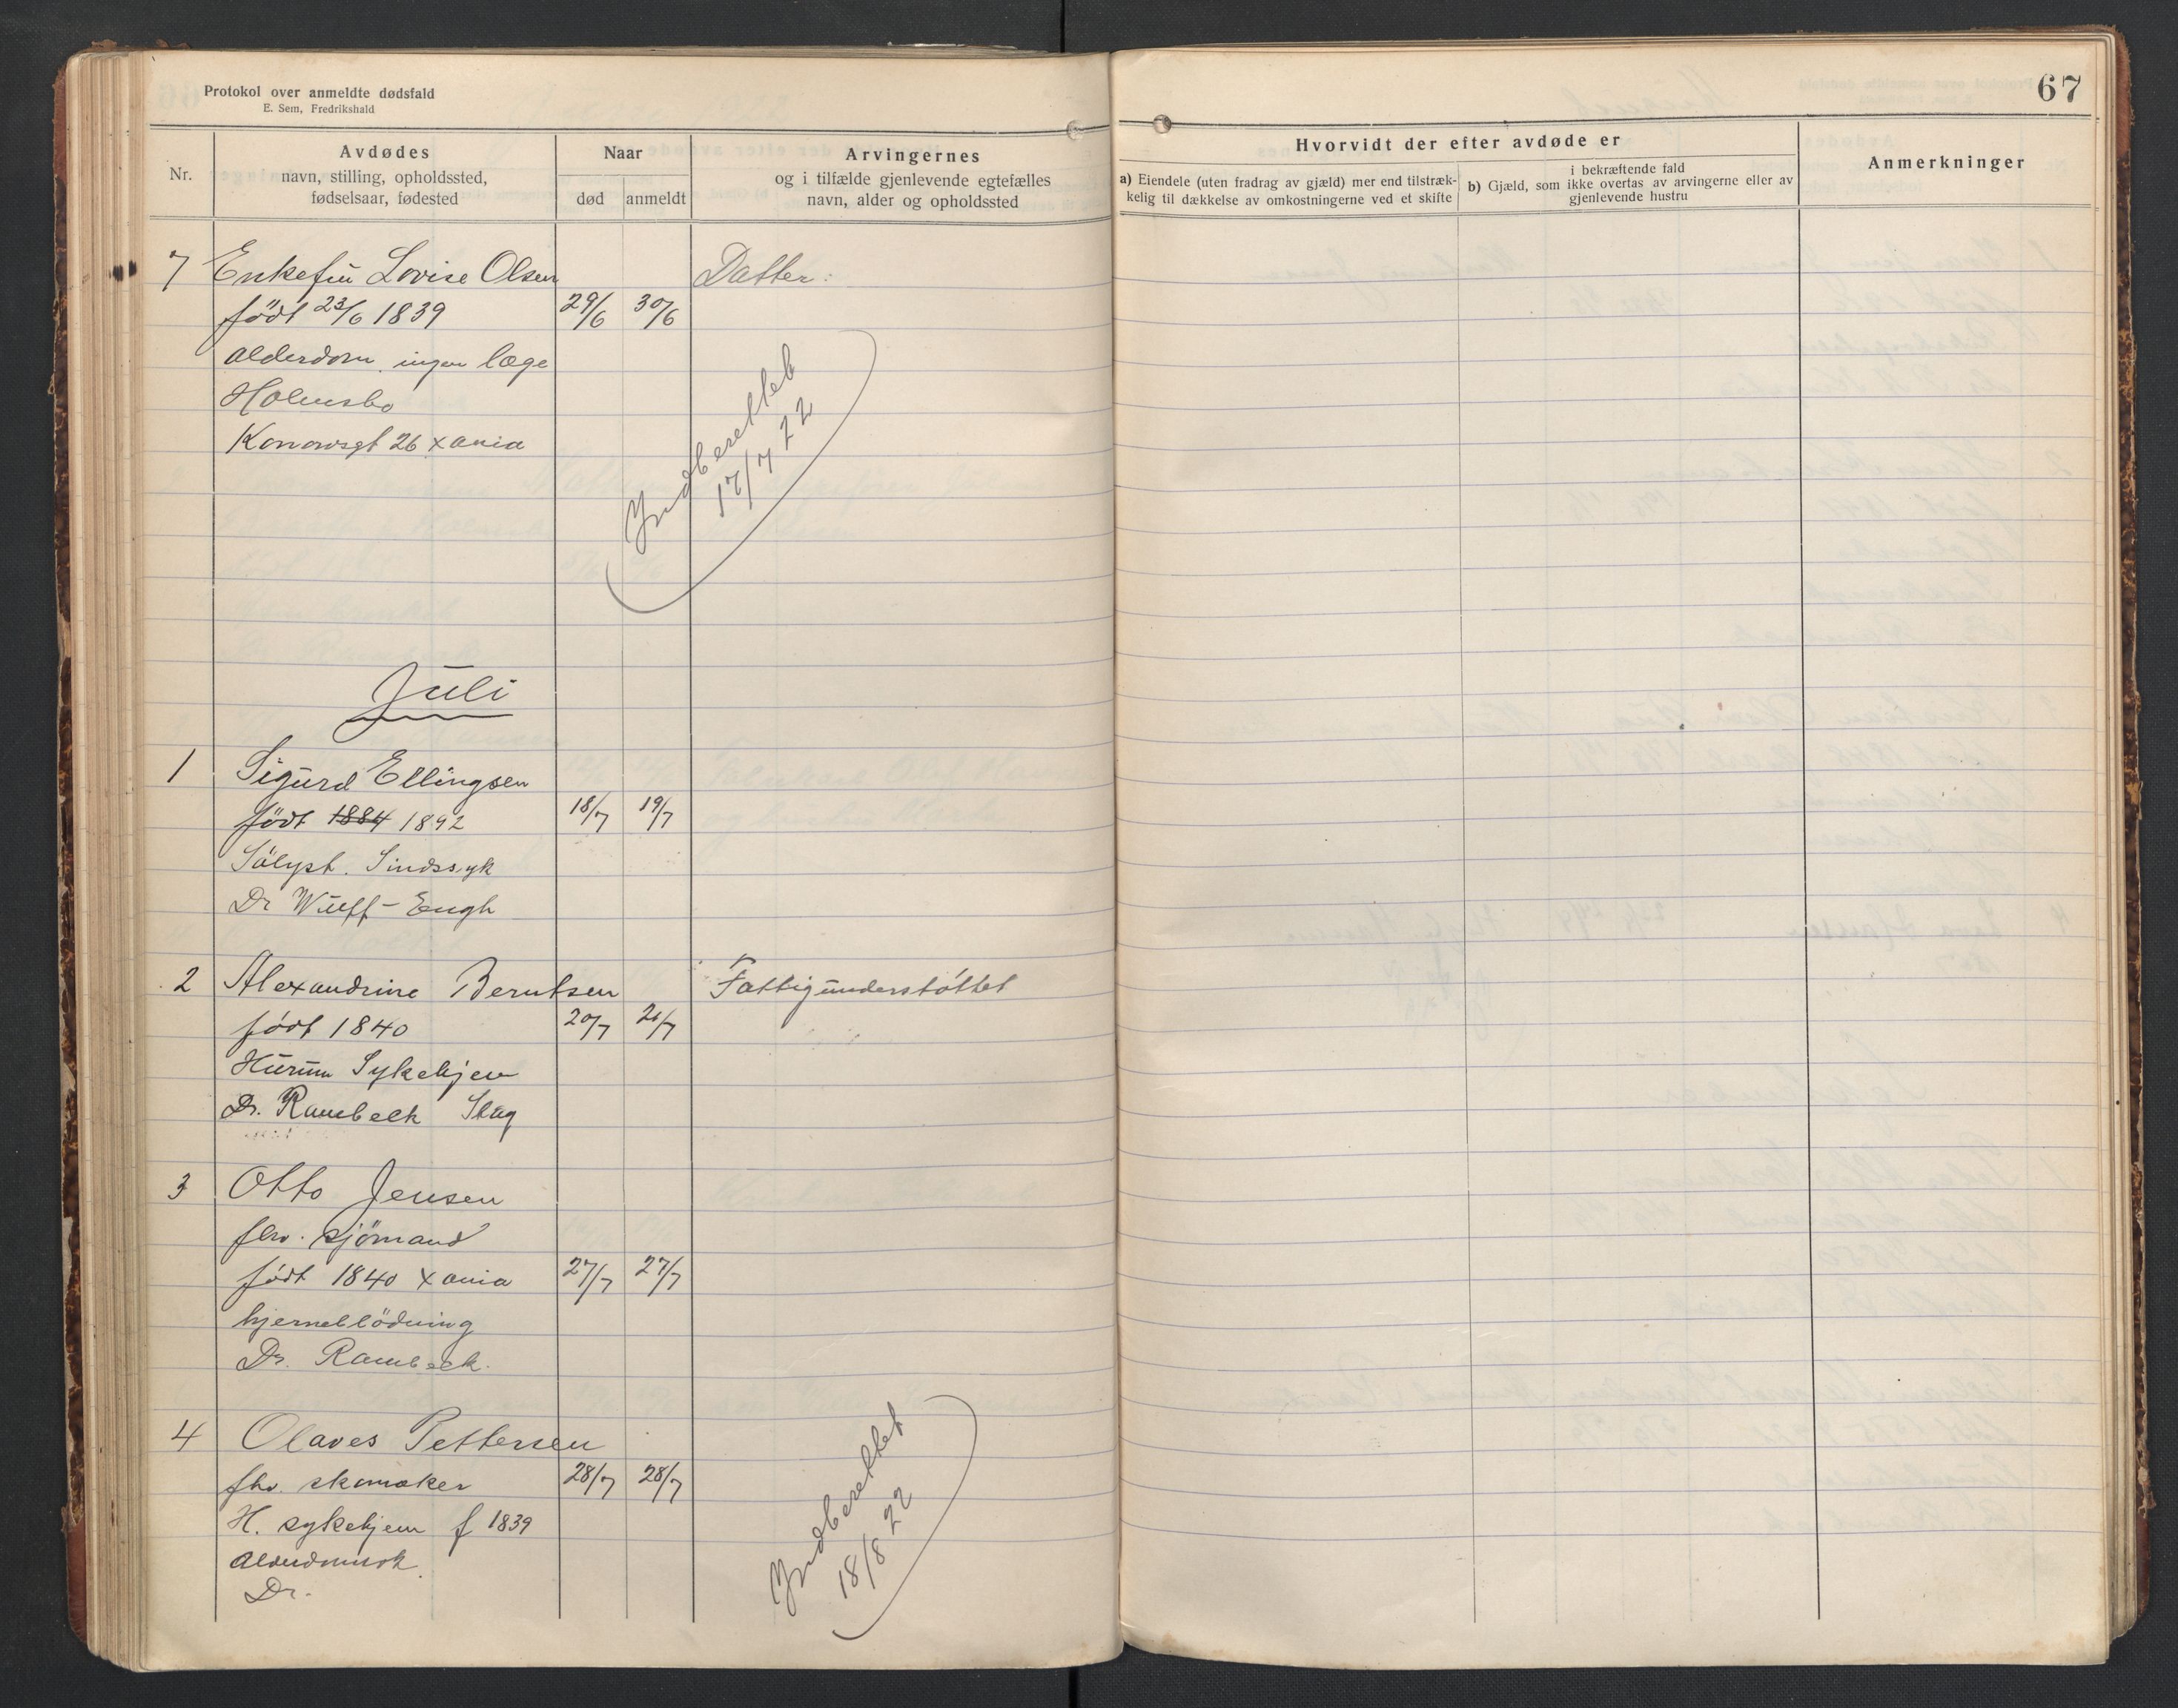 Protokol over anmeldte dødsfald
E. Sem, Fredrikshald
67
Nr.
Avdødes
navn, stilling, opholdssted,
fødselsaar, fødested
Naar
død
anmeldt
Arvingernes
og i tilfælde gjenlevende egtefælles
navn, alder og opholdssted
Hvorvidt der efter avdøde er
a) Eiendele (uten fradrag av gjæld) mer end tilstræk-
kelig til dækkelse av omkostningerne ved et skifte
i bekræftende fald
b) Gjæld, som ikke overtas av arvingerne eller av
gjenlevende hustru
Anmerkninger
7 Enkefru Lovise Olsen Datter:
født 23/6 1839 29/6 30/6
alderdom. ingen læge
Holmsbo
Konowsgt 26 Xania
Indberettet
17/7 22
Juli
1 Sigurd Ellingsen
født 1884 1892 18/7 19/7
Sölyst. Sindssyk
Dr Wulff-Engh
2 Alexandrine Berntsen Fattigunderstöttet
født 1840 20/7 21/7
Hurum Sykehjem
Dr. Rambeck Slag
3 Otto Jensen
fhv. sjömand
født 1840 Xania 27/7 27/7
hjerneblödning
Dr. Rambeck.
4 Olaves Pettersen
fhv. skomaker 28/7 28/7
H. sykehjem f 1839
Dr.
Indberettet
18/8 22